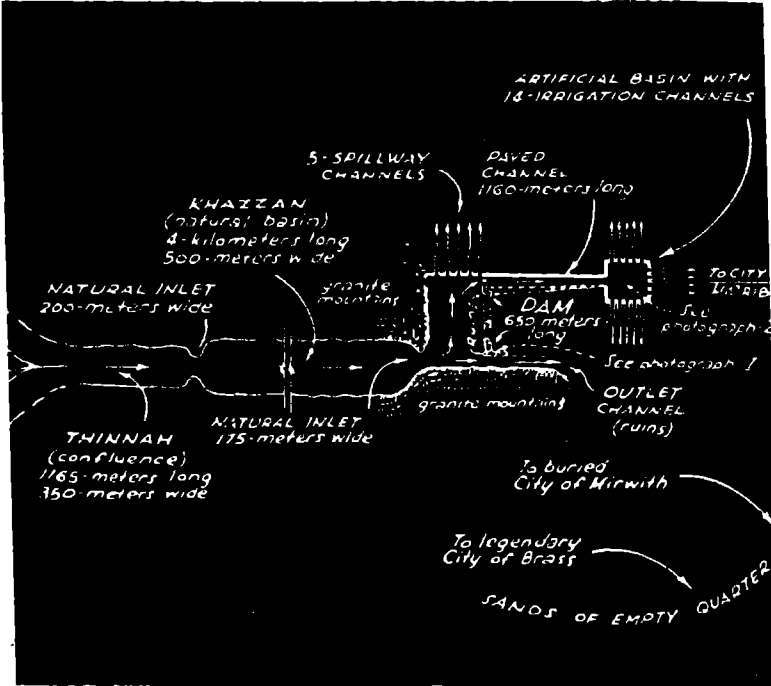 ARTIFICIAL BASIN WITH
14-IRRIGATION CHANNELS
5-SPILLWAY
CHANNELS
PAVED
CHANNEL
1160-meters long
KHAZZAN
(natural basin)
4-kilometers long
500-meters wide
NATURAL INLET
200-meters wide
granite
mountains
DAM
650 meters
long
To CITY
See
photograph-2
See photograph 1
granite mountains
OUTLET
CHANNEL
(ruins)
NATURAL INLET
175-meters wide
THINNAH
(confluence)
1165-meters long
350-meters wide
To buried
City of Mirwith
To legendary
City of Brass
SANDS OF EMPTY QUARTER